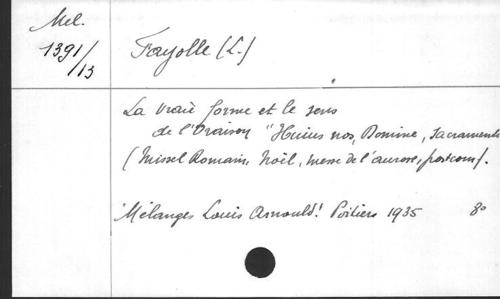 Mel.
1391/13
Fayolle (L.)
La vraie forme et le sens
de l'Oraison "Huius nos, Domine, sacramenti
(Missel Romain, Noël, messe de l'aurore, postcom).
'Mélanges Louis Arnould'. Poitiers 1935 8°